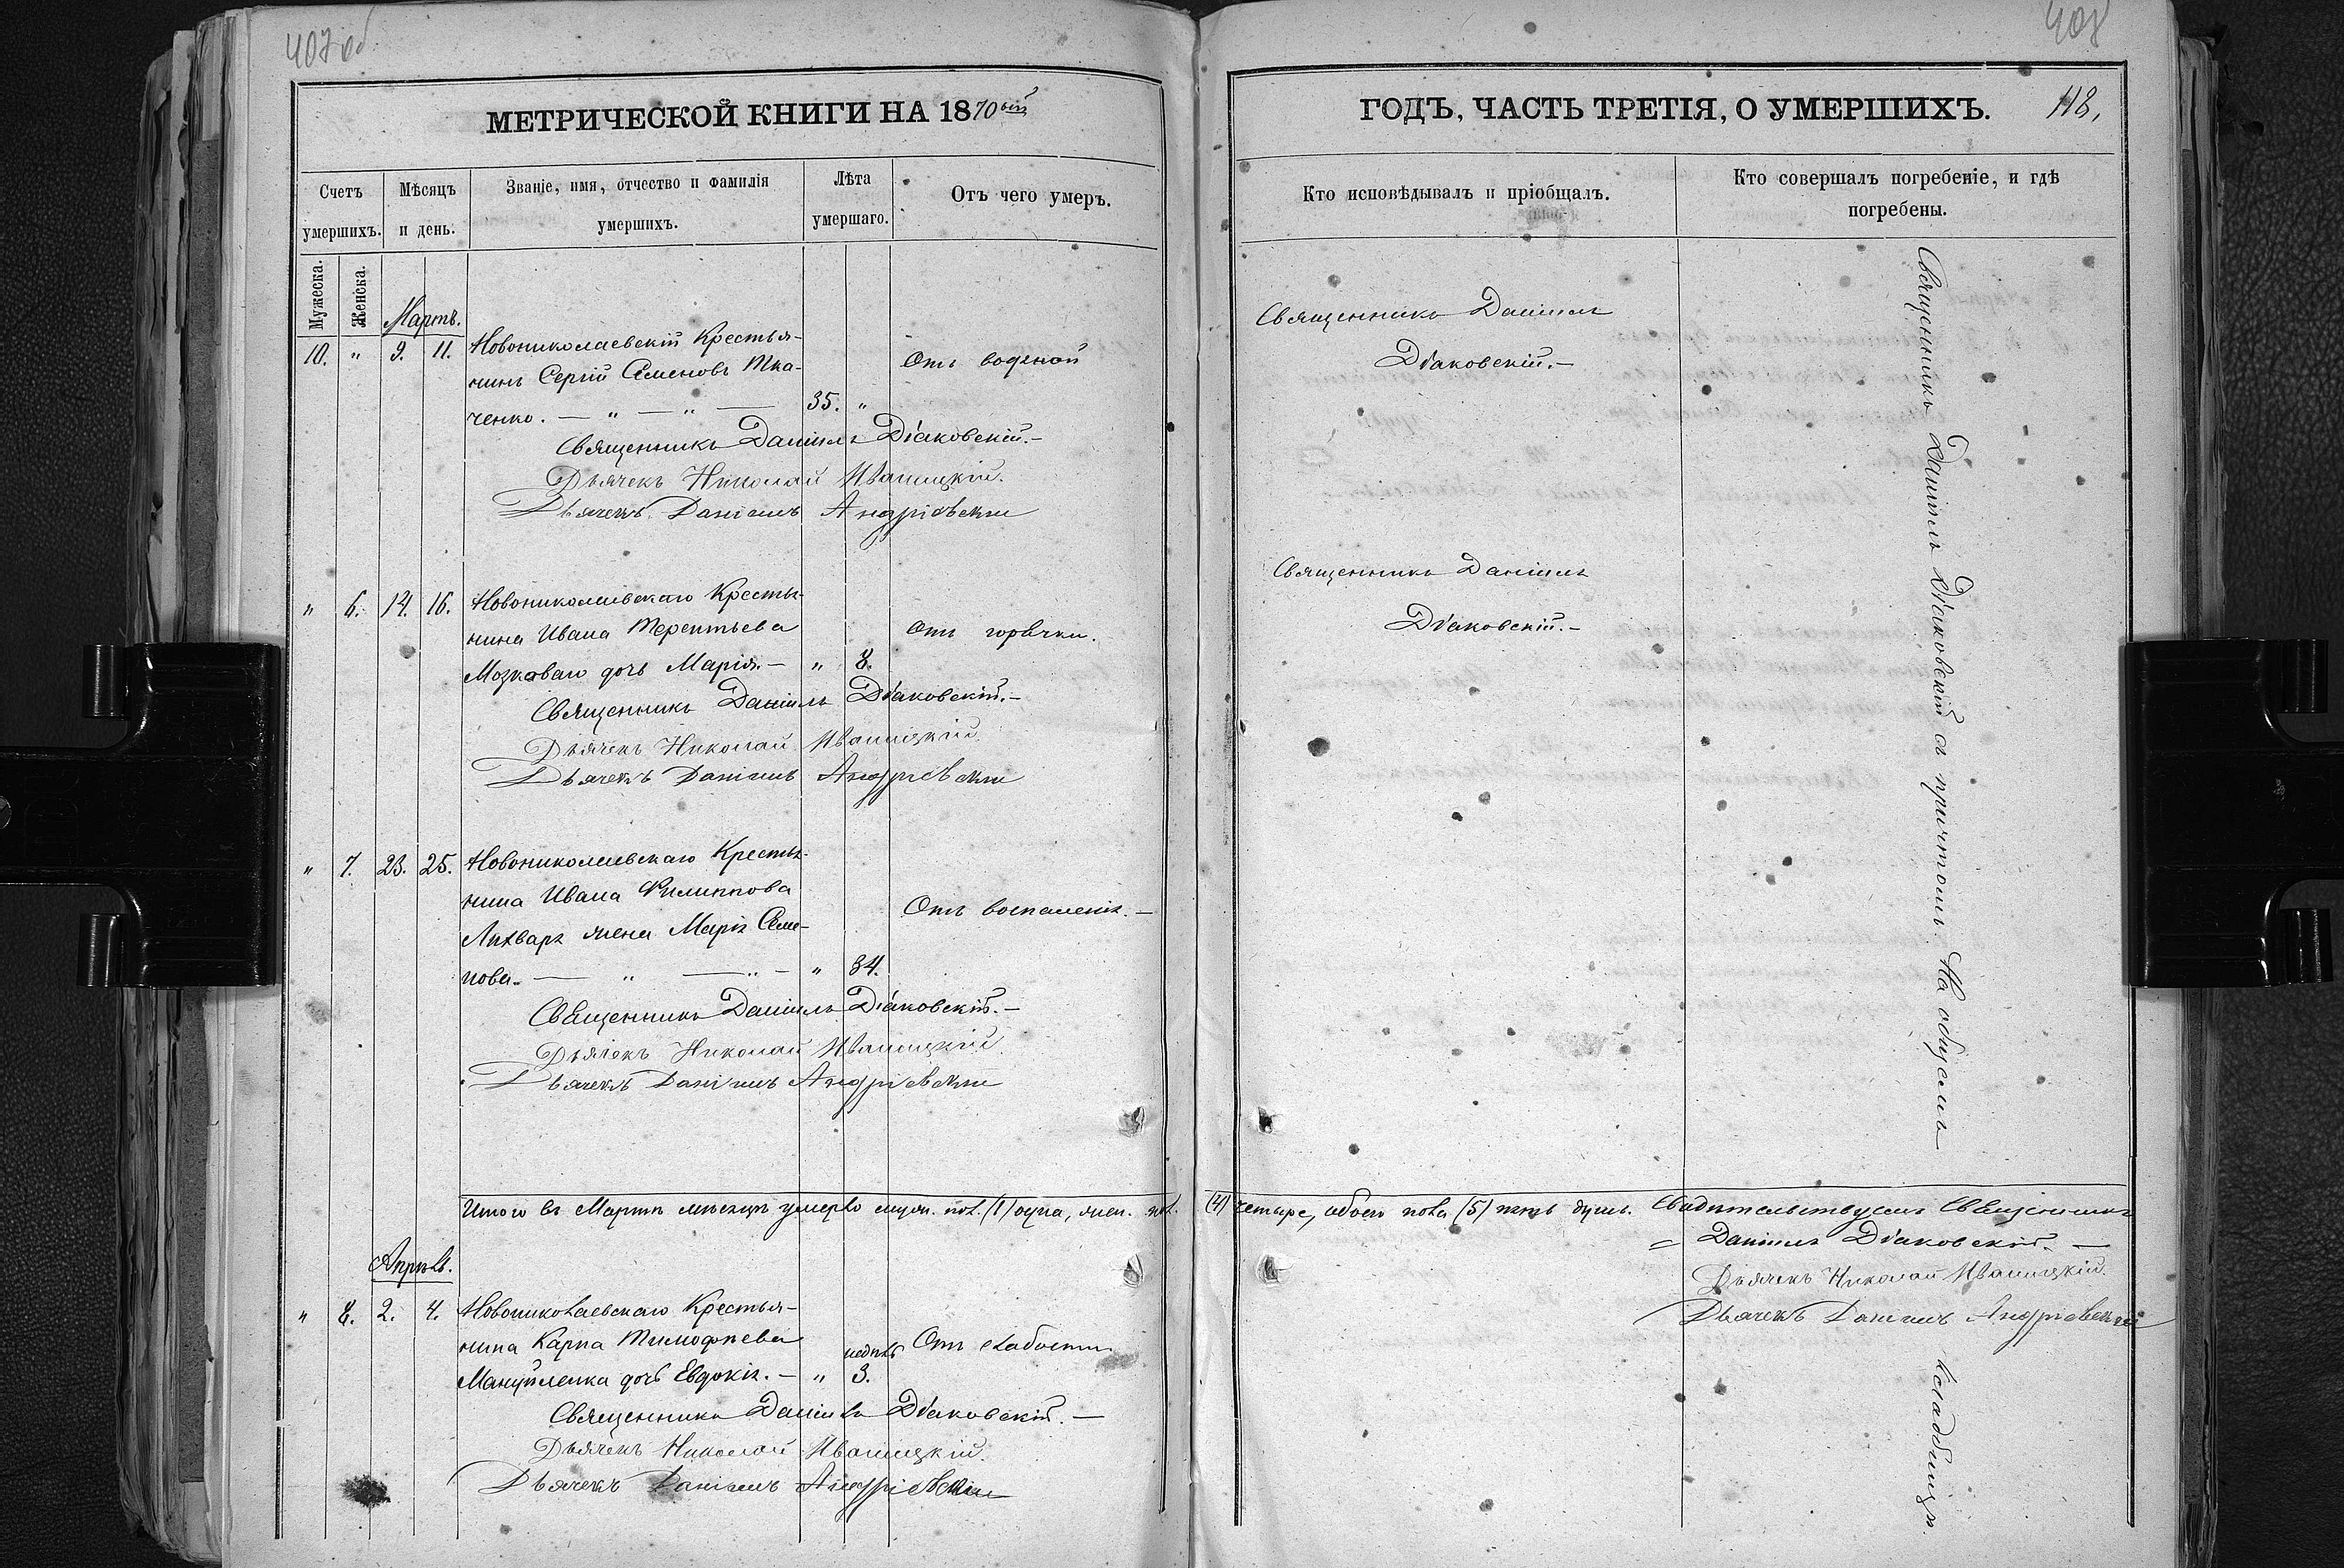 407 об
МЕТРИЧЕСКОЙ КНИГИ НА 1870ый
Счетъ умершихъ.
Мѣсяцъ и день.
Званіе, имя, отчество и фамилія умершихъ.
Лѣта умершаго.
Отъ чего умеръ.
Мужеска.
Женска.
Мартъ.
10. " 9. 11. Новониколаевскій Крестья-
нинъ Сергій Семеновъ Тка- Отъ водяной
ченко. — " — " — 35. "
Священникъ Даніилъ Діаковскій.—
Дьячекъ Николай Иваницкій.
Дьячекъ Даніилъ Андріевскій
" 6. 14. 16. Новониколаевскаго Крестья-
нина Ивана Терентьева Отъ горячки.
Мозговаго дочь Марія.— " 8.
Священникъ Даніилъ Діаковскій.—
Дьячекъ Николай Иваницкій
Дьячекъ Даніилъ Андріевскій
" 7. 23. 25. Новониколаевскаго Крестья-
нина Ивана Филиппова
Лихваря жена Марія Семе- Отъ воспаленія.—
нова. — " — " — " 34.
Священникъ Даніилъ Діаковскій.—
Дьячекъ Николай Иваницкій
Дьячекъ Даніилъ Андріевскій
Итого въ Мартѣ мѣсяцѣ умерло муж. пол. (1) одна, жен. пол.
Апрѣль.
" 8. 2. 4. Новониколаевскаго Крестья-
нина Карпа Тимофѣева недѣль Отъ слабости
Мануйленка дочь Евдокія.— " 3.
Священникъ Даніилъ Діаковскій.—
Дьячекъ Николай Иваницкій.
Дьячекъ Даніилъ Андріевскій
408
ГОДЪ, ЧАСТЬ ТРЕТІЯ, О УМЕРШИХЪ.
118.
Кто исповѣдывалъ и пріобщалъ.
Кто совершалъ погребеніе, и гдѣ
погребены.
Священникъ Даніилъ
Діаковскій.—
Священникъ Даніилъ
Діаковскій.—
Священникъ Даніилъ Діаковскій съ причтомъ. На общемъ
(4) четыре, обоего пола (5) пять душъ. Свидѣтельствуемъ Священникъ
Даніилъ Діаковскій.—
Дьячекъ Николай Иваницкій.
Дьячекъ Даніилъ Андріевскій
кладбищѣ.